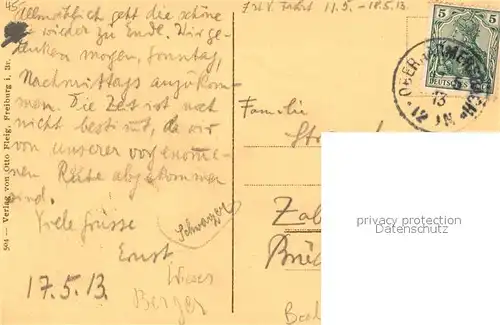 Allmählich geht die schöne
wieder zu Ende. Wir ge-
denken morgen, Sonntag,
Nachmittags anzukom-
men. Die Zeit ist noch
nicht bestimmt, da wir
von unserer vorgenomme-
nen Route abgekommen
sind.
Viele Grüsse
Ernst
Schwarzer
Wieser
Berger
17.5.13.
504 — Verlag von Otto Fleig, Freiburg i. Br.
Fahrt 11.5. - 18.5.13.
5 5
DEUTSCHES
13
12
Familie
privates copyright
AK-Ansichtskarten